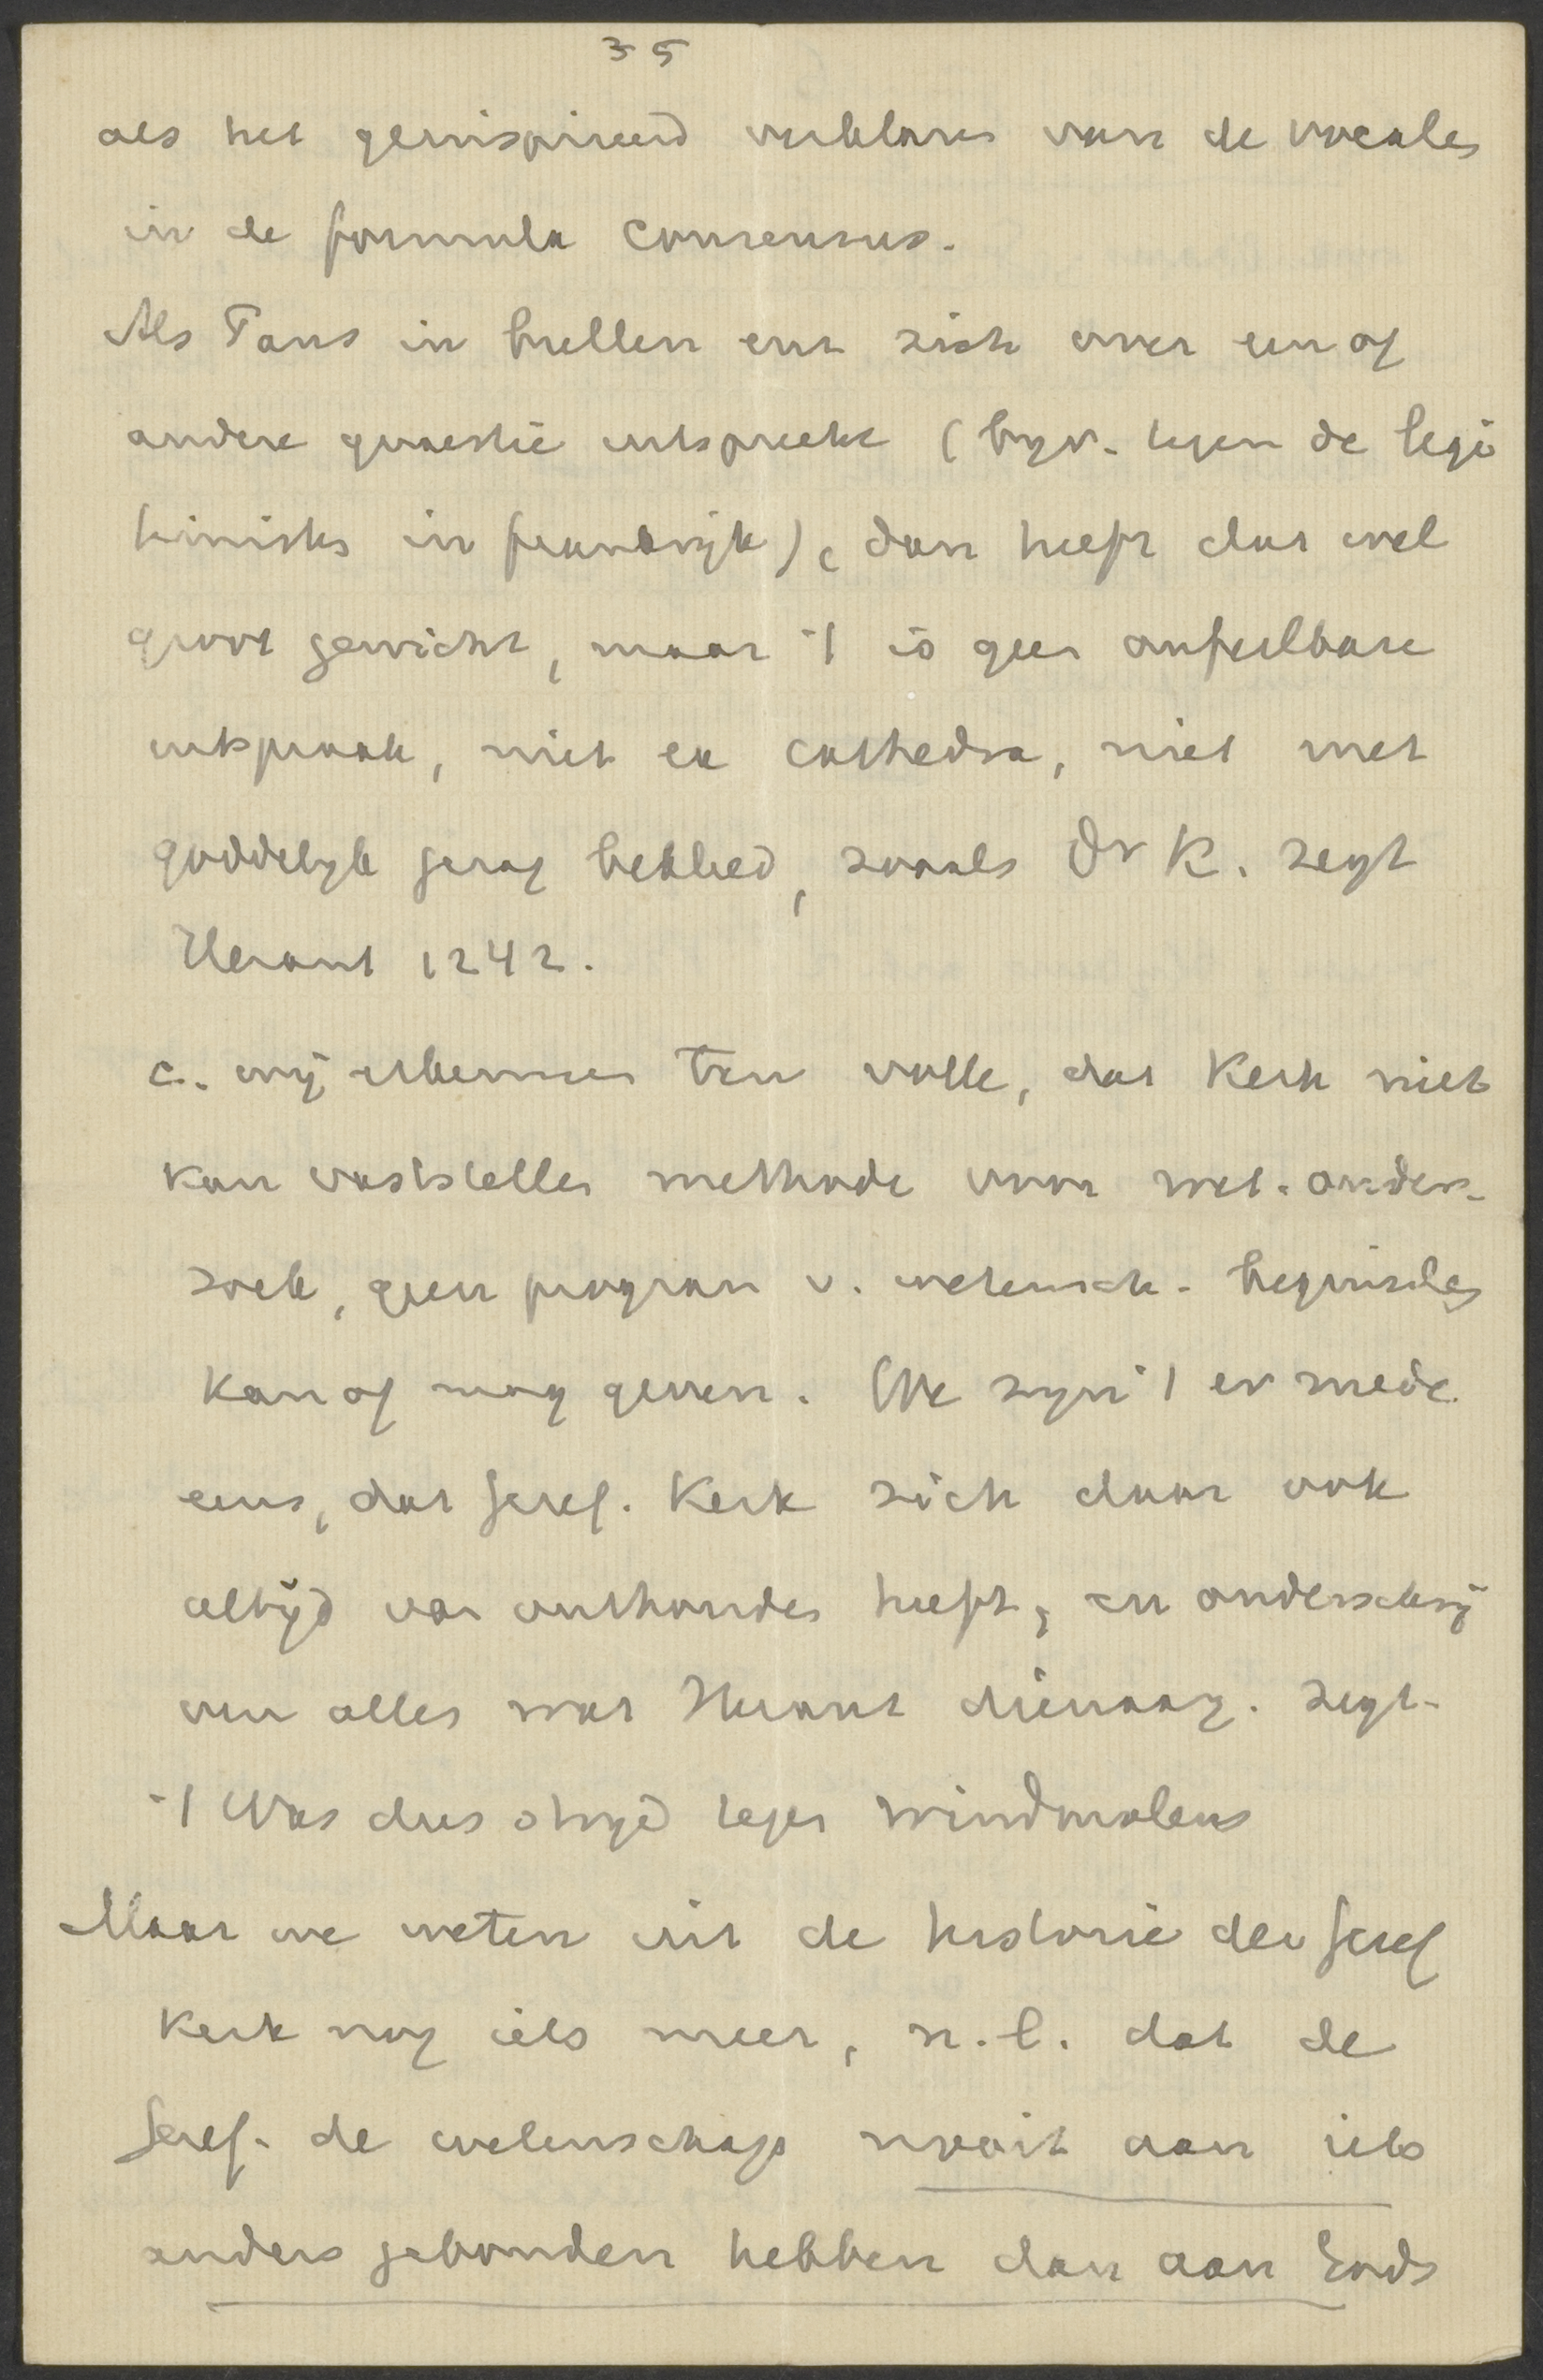 35
als het geinspireerd verklaren van de vocales
in de formula consensus.
Als Paus in bullen enz zich over een of
andere quaestie uitspreekt (byv. tegen de legi
timisten in frankrijk), dan heeft dat wel
groot gewicht, maar 't is geen onfeilbare
uitspraak, niet ex cathedra, niet met
goddelyk gezag bekleed, zooals Dr K. zegt
Heraut 1242.
c. wij erkennen ten volle, dat Kerk niet
kan vaststellen methode voor wet. onder-
zoek, geen program v. wetensch. beginselen
kan of mag geven. We zyn 't er mede
eens, dat Geref. Kerk zich daar ook
altijd van onthouden heeft, en onderschrij
ven alles wat Heraut dienaang. zegt.
't Was dus strijd tegen windmolens
Maar we weten uit de historie der Geref
Kerk nog iets meer, n.l. dat de
Geref. de wetenschap nooit aan iets
anders gebonden hebben dan aan Gods